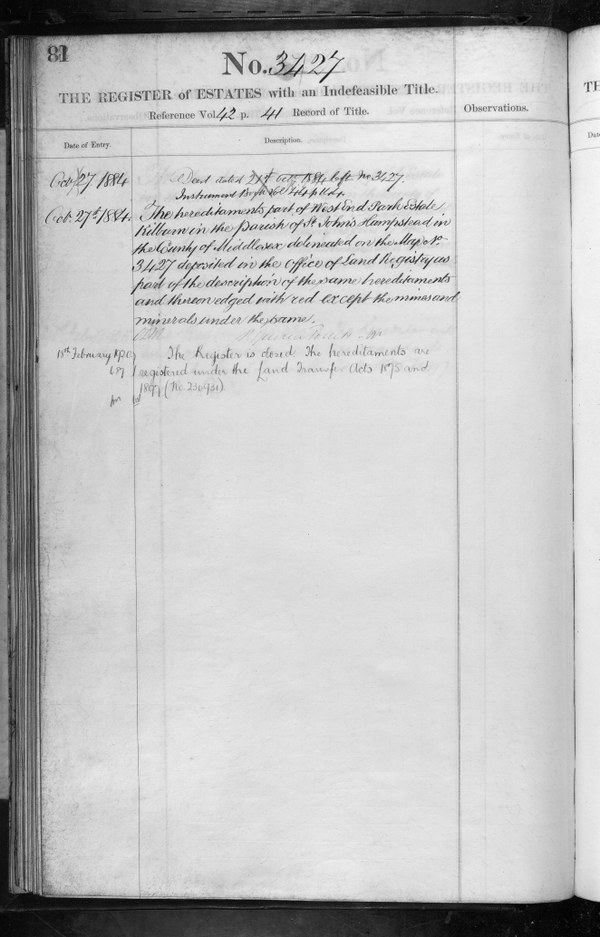 81
No. 3427
THE REGISTER of ESTATES with an Indefeasible Title.
Reference Vol. 42 p. 41 Record of Title.
Observations.
Date of Entry.
Description.
Oct 27 1884
Deed dated Oct 1884 left No 3427.
Instrument Book Vol
Oct. 27th 1884.
The hereditaments part of West End Park Estate
Kilburn in the Parish of St John's Hampstead in
the County of Middlesex delineated on the Map No.
3427 deposited in the Office of Land Registry as
part of the description of the same hereditaments
and thereon edged with red except the mines and
minerals under the same.
18th February
The Register is closed. The hereditaments are
registered under the Land Transfer Acts 1875 and
1897 (No.
TH